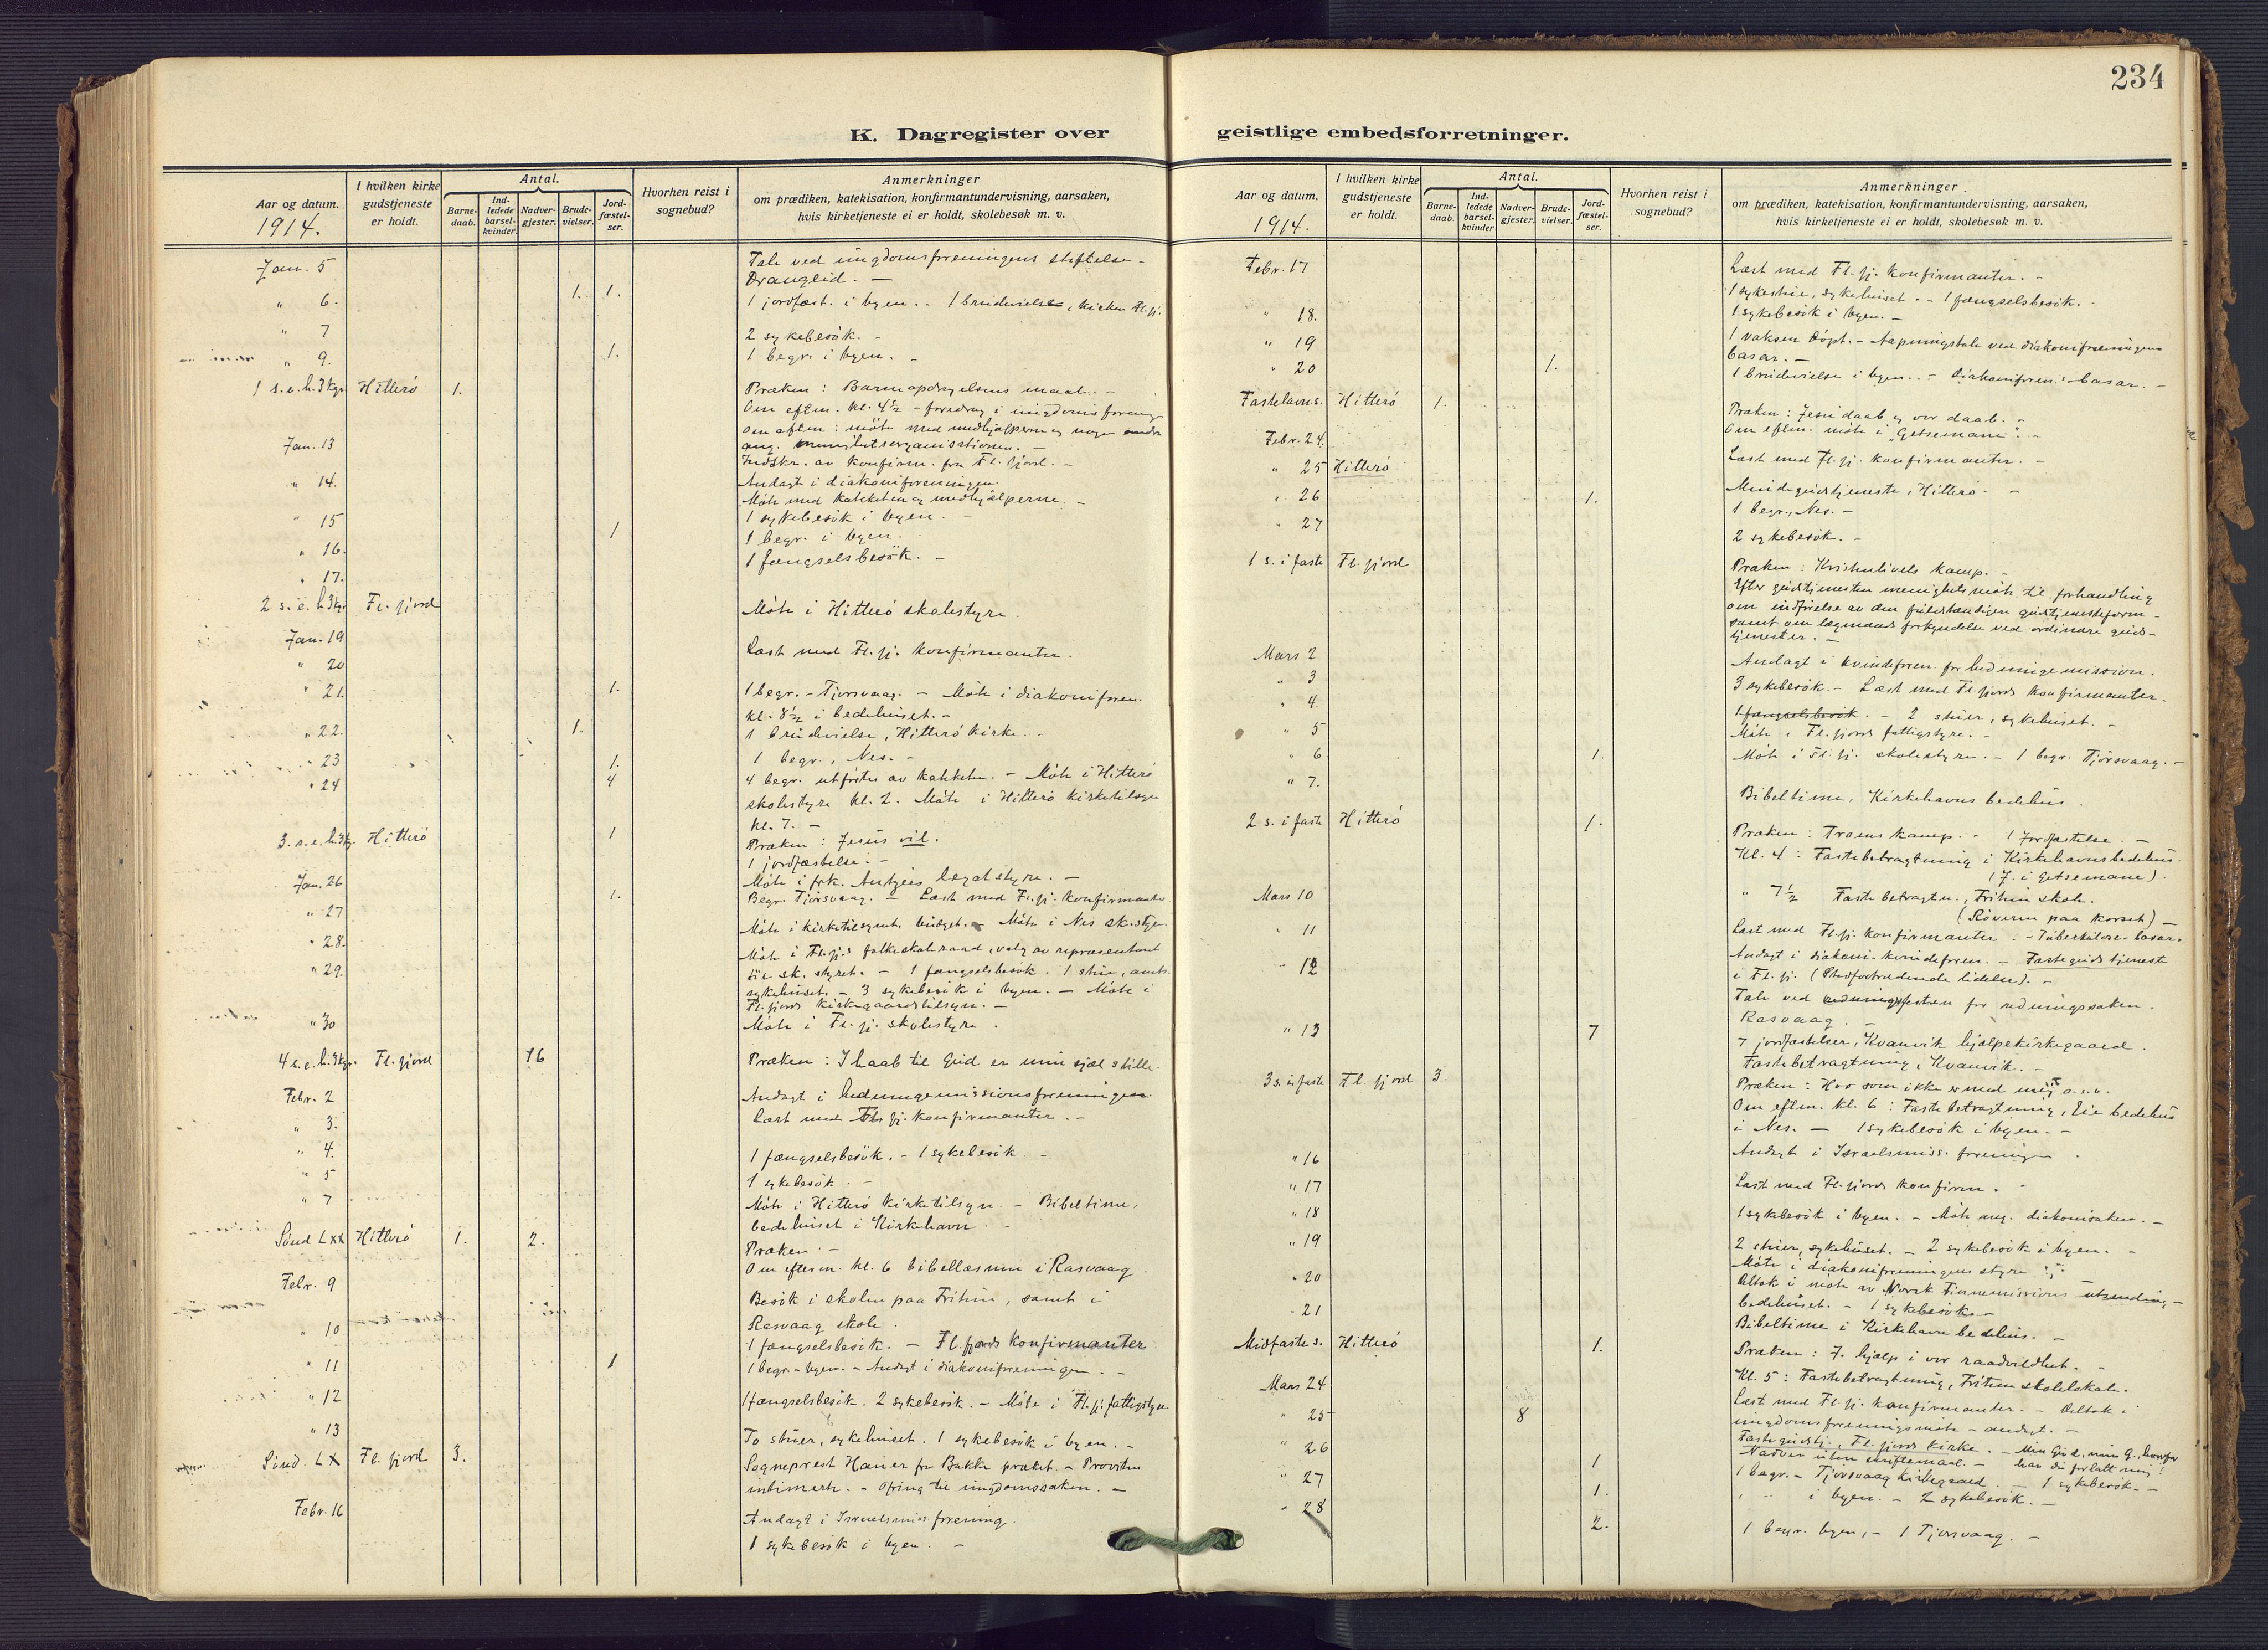 234
K. Dagregister over geistlige embedsforretninger.
Aar og datum.
1914.
I hvilken kirke gudstjeneste er holdt.
Antal.
Barnedaab.
Indledede barselkvinder.
Nadvergjester.
Brudevielser.
Jordfæstelser.
Hvorhen reist i sognebud?
Anmerkninger
om prædiken, katekisation, konfirmantundervisning, aarsaken,
hvis kirketjeneste ei er holdt, skolebesøk m. v.
Jan. 5 Tale ved ungdomsforeningens stiftelse -
Drangeid. -
" 6. 1. 1. 1 jordfæst. i byen. - 1 brudevielse, kirken Fl.fj.
" 7 2 sykebesök. -
" 9. 1. 1 begr. i byen. -
1 s.e.h.3kgr Hitterö 1. Præken: Barneopdragelsens maal. -
Om eftm. kl. 4½ - foredrag i ungdomsforening
Om eftm: möte med medhjælperne og nogen andre
ang. menighetsorganisationen. -
Jan. 13 Indskr. av konfirm. fra Fl. fjord. -
" 14. Andagt i diakoniforeningen.
Möte med kateketen og medhjælperne. -
" 15 1 1 sykebesök i byen. -
1 begr. i byen.
" 16. 1 fængselsbesök. -
" 17.
2 s.e.h.3kgr Fl. fjord Möte i Hitterö skolestyre.
Jan. 19
" 20 Læst med Fl. fj. konfirmanter.
" 21. 1. 1 begr. - Tjorsvaag. - Möte i diakoniforen.
kl. 8½ i bedehuset. -
" 22. 1. 1 brudevielse, Hitterö kirke. -
" 23 1. 1 begr., Nes. -
" 24 4 4 begr. utförtes av kateketen. - Möte i Hitterö
skolestyre kl. 2. Möte i Hitterö kirketilsyn
kl. 7. -
3. s.e.h.3kgr. Hitterö 1 Præken: Jesus vil.
1 jordfæstelse. -
Jan. 26 Möte i frk. legatstyre. -
" 27 1. Begr. Tjorsvaag. - Læst med Fl. fj. konfirmanter
" 28. Möte i kirketilsynet, - Möte i Nes sk.styre
" 29. Möte i Fl. fj.s folkeskoleraad, valg av repræsentant
til sk. styret. - 1 fængselsbesök. 1 stue, amts
sykehuset. - 3 sykebesök i byen. - Möte i
Fl. fjords kirkegaardstilsyn. -
" 30 Möte i Fl. fj. skolestyre.
4 s.e.h.3kgr. Fl. fjord 16 Præken: I haab til Gud er min sjæl stille.
Febr. 2 Andagt i hedningemissionsforeningen.
" 3. Læst med Fl. fj. konfirmanter. -
" 4. 1 fængselsbesök. - 1 sykebesök. -
" 5 1 sykebesök. -
" 7 Möte i Hitterö kirketilsyn. - Bibeltime,
bedehuset i Kirkehavn. -
Sönd LXX Hitterö 1. 2. Præken. -
Om efterm. kl. 6 bibellæsning i Rasvaag.
Febr. 9 Besök i skolen paa Fritun, samt i
Rasvaag skole.
" 10 1 fængselsbesök. - Fl. fjords konfirmanter
" 11 1 1 begr. - byen. - Andagt i diakoniforeningen. -
" 12 1 fængselsbesök. 2 sykebesök. - Möte i Fl. fj. fattigstyre
" 13 To stuer, sykehuset. 1 sykebesök i byen. -
Sönd. LX Fl. fjord 3. Sogneprest Hauer fra Bakke præket. - Provsten
intimerte. - Ofring til ungdomssaken. -
Febr. 16 Andagt i Israelsmiss. forening.
1 sykebesök i byen. -
Aar og datum.
1914.
I hvilken kirke gudstjeneste er holdt.
Antal.
Barnedaab.
Indledede barselkvinder
Nadvergjester.
Brudevielser.
Jordfæstelser.
Hvorhen reist i sognebud?
Anmerkninger
om prædiken, katekisation, konfirmantundervisning, aarsaken,
hvis kirketjeneste ei er holdt, skolebesøk m. v.
Febr. 17 Læst med Fl. fj. konfirmanter. -
1 sykestue, sykehuset. - 1 fængselsbesök. -
" 18. 1 sykebesök i byen. -
" 19 1 voksen döpt. - Aapningstale ved diakoniforeningens
basar. -
" 20 1. 1 brudevielse i byen. - Diakoniforen.s basar. -
Fastelavns. Hitterö 1. Præken: Jesu daab og vor daab. -
Om eftm. möte i "Getsemane". -
Febr. 24. Læst med Fl. fj. konfirmanter. -
" 25 Hitterö Mindegudstjeneste, Hitterö. -
" 26 1. 1 begr., Nes. -
" 27 2 sykebesök. -
1 s. i faste Fl. fjord Præken: Kristenlivets kamp. -
Efter gudstjenesten menighetsmöte til forhandling
om indförelse av den fuldstændigere gudstjenesteform -
samt om lægmands forkyndelse ved ordinære guds-
tjenester. -
Mars 2 Andagt i kvindeforen. for hedningemission.
" 3 3 sykebesök. - Læst med Fl. fjords konfirmanter.
" 4. 1 fængselsbesök. - 2 stuer, sykehuset. -
" 5 Möte i Fl. fjords fattigstyre. -
" 6 1. Möte i Fl. fj. skolestyre. - 1 begr. Tjorsvaag. -
" 7. Bibeltime, Kirkehavns bedehus.
2 s. i faste Hitterö 1. Præken: Troens kamp. - 1 jordfæstelse -
Kl. 4: Fastebetragtning i Kirkehavns bedehus.
(J. i Getsemane).
" 7½ Fastebetragtn., Fritun skole.
(Röveren paa korset) -
Mars 10 Læst med Fl. fj. konfirmanter. - Tuberkulose-basar.
" 11 Andagt i diakoni-kvindeforen. - Fastegudstjeneste
i Fl. fj. (Stedfortrædende lidelse). -
" 12 Tale ved festen for redningssaken.
Rasvaag. -
" 13 7 7 jordfæstelser, Kvanvik hjælpekirkegaard.
Fastebetragtning, Kvanvik. -
3 s. i faste Fl. fjord 3. Præken: Hvo som ikke er med mig o.s.v.
Om eftm. kl. 6: Fastebetragtning, Eie bedehus
i Nes. - 1 sykebesök i byen. -
" 16 Andagt i Israelsmiss. foreningen.
" 17 Læst med Fl. fjords konfirm. -
" 18 1 sykebesök i byen. - Möte ang. diakonisaken. -
" 19 2 stuer, sykehuset. - 2 sykebesök i byen. -
Möte i diakoniforeningens styre
" 20 Deltok i möte av Norsk Finnemissions utsending -
bedehuset. - 1 sykebesök. -
" 21 Bibeltime i Kirkehavn bedehus. -
Midfaste s. Hitterö 1. Præken: J. hjælp i vor raadvildhet. -
Kl. 5: Fastebetragtning, Fritun skolelokale.
Mars 24 Læst med Fl. fj. konfirmanter. - Deltok i
ungdomsforeningsmöte - andagt. -
" 25 8 Fastegudstj., Fl. fjords kirke. - Min Gud, min G., hvorfor
har du forlatt mig!
Nadver uten skriftemaal. -
" 26 1 1 begr. - Tjorsvaag kirkegaard. - 1 sykebesök. -
" 27 1. " " i byen. - 2 sykebesök. -
" 28 2. 1 begr. byen, - 1 Tjorsvaag. -